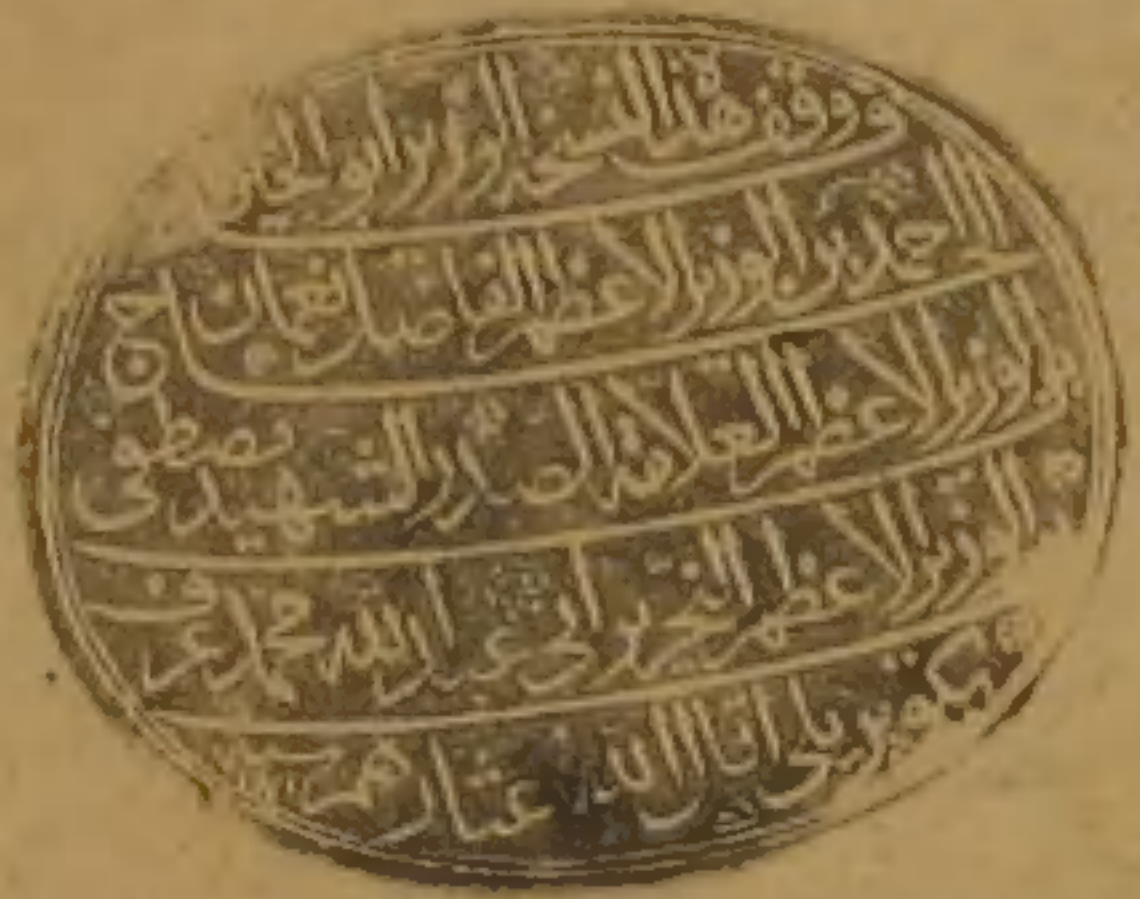 قد وقف هذه النسخة الوزير ابو الخير
الحاج احمد بن الوزير الاعظم الفاضل نعمان
بن الوزير الاعظم العلامة الصدر الشهيد مصطفى
بن الوزير الاعظم النحرير ابى عبد الله محمد عرف
بكوبريلى انال الله عثارهم